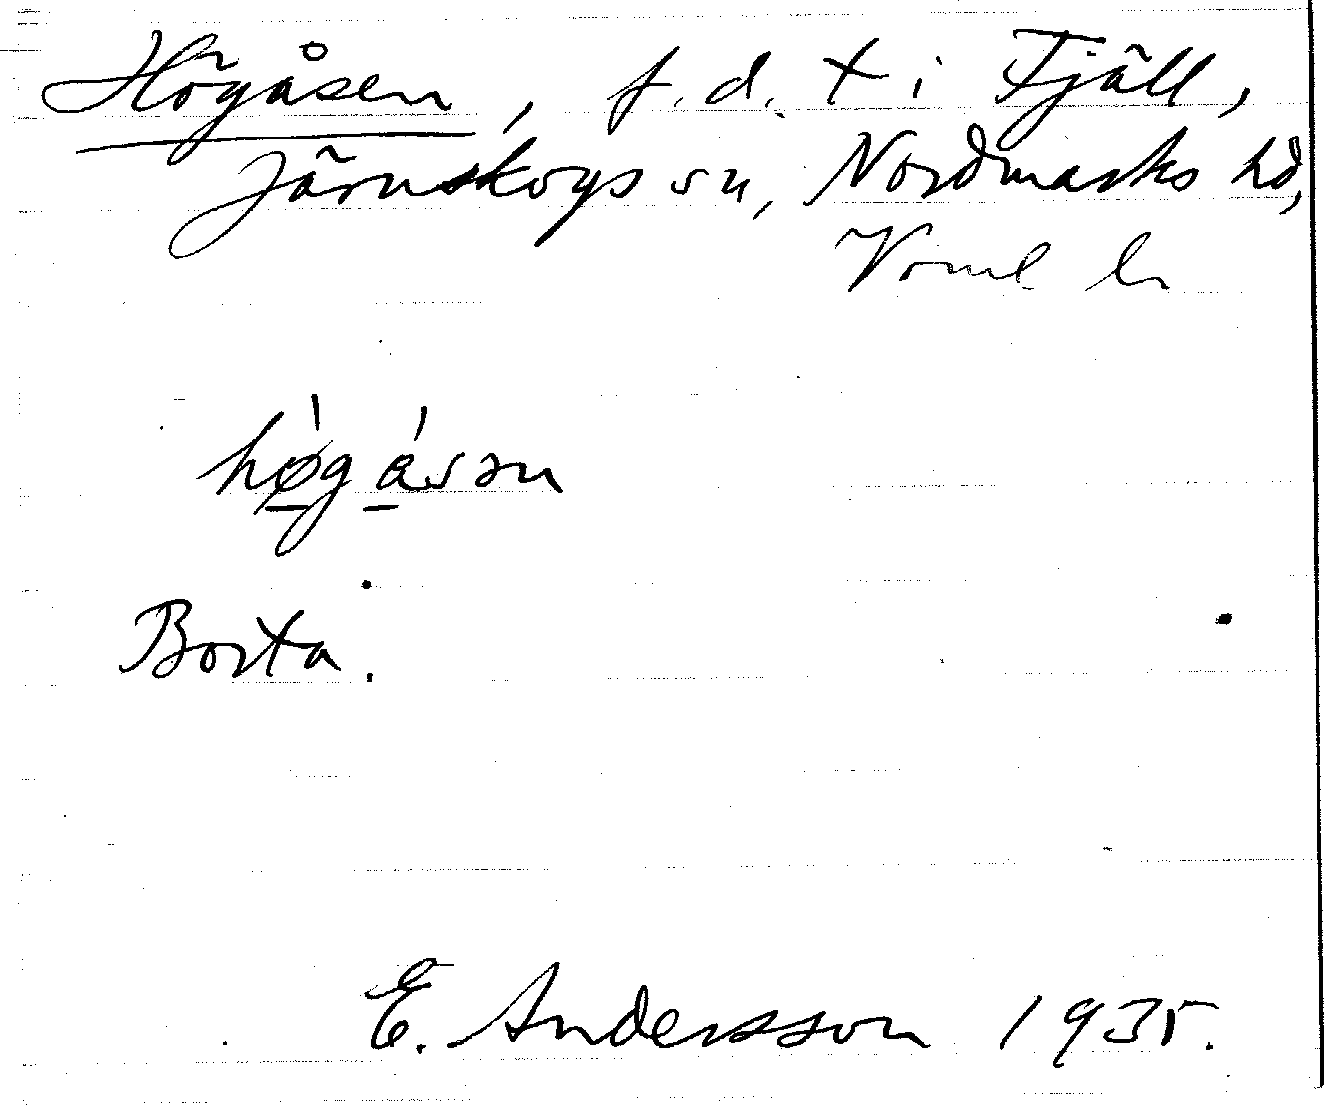 Högåsen, f.d. t i Fjäll,
Järnskogs sn, Nordmarks hd,
Värml. l.
hǿ̱gá̱sən
Borta.
E. Andersson 1935.